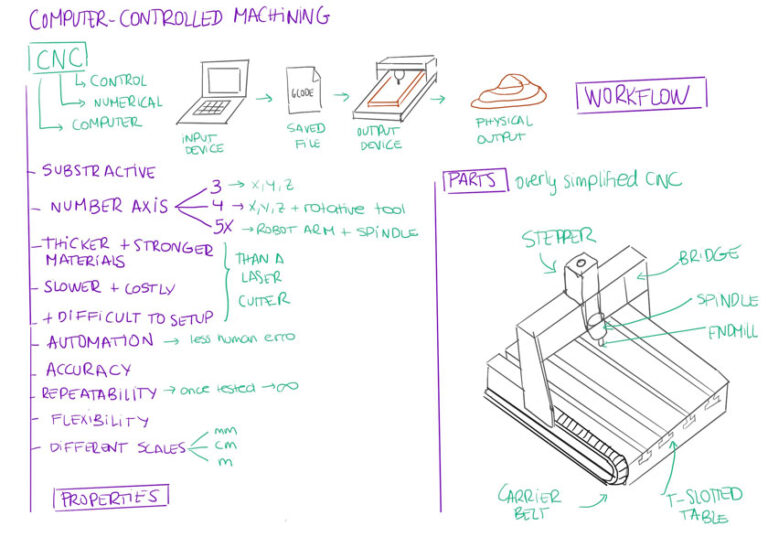 COMPUTER-CONTROLLED MACHINING
CNC
CONTROL
NUMERICAL
COMPUTER
INPUT
DEVICE
GCODE
SAVED
FILE
OUTPUT
DEVICE
PHYSICAL
OUTPUT
WORKFLOW
- SUBSTRACTIVE
- NUMBER AXIS
3 → X, Y, Z
4 → X, Y, Z + rotative tool
5X → ROBOT ARM + SPINDLE
- THICKER + STRONGER
MATERIALS
- SLOWER + COSTLY
+ DIFFICULT TO SETUP
THAN A
LASER
CUTTER
- AUTOMATION → less human erro
ACCURACY
- REPEATABILITY → once tested → ∞
FLEXIBILITY
- DIFFERENT SCALES
mm
cm
m
PROPERTIES
PARTS overly simplified CNC
STEPPER
BRIDGE
SPINDLE
ENDMILL
CARRIER
BELT
T-SLOTTED
TABLE